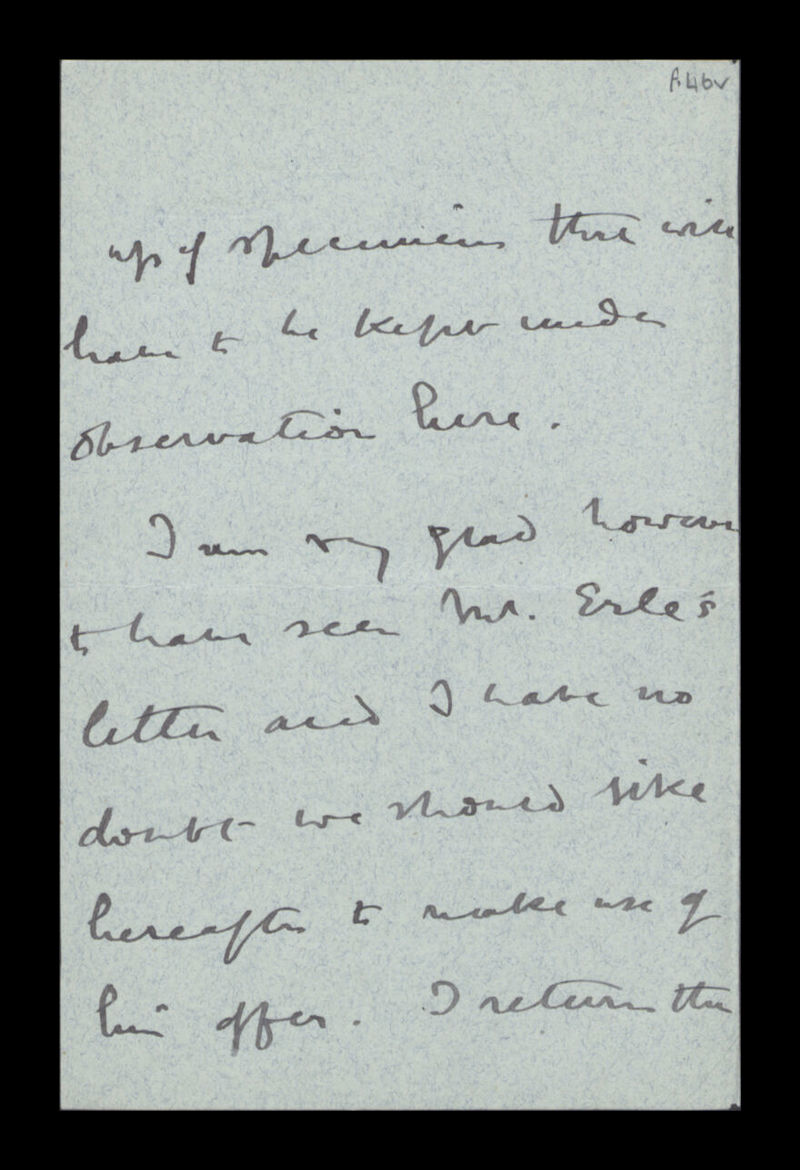 f.46v
up of specimens that will
have to be kept under
observation here.
I am very glad however
to have seen Mr. Erle's
letter and I have no
doubt we should like
hereafter to make use of
his offer. I return the